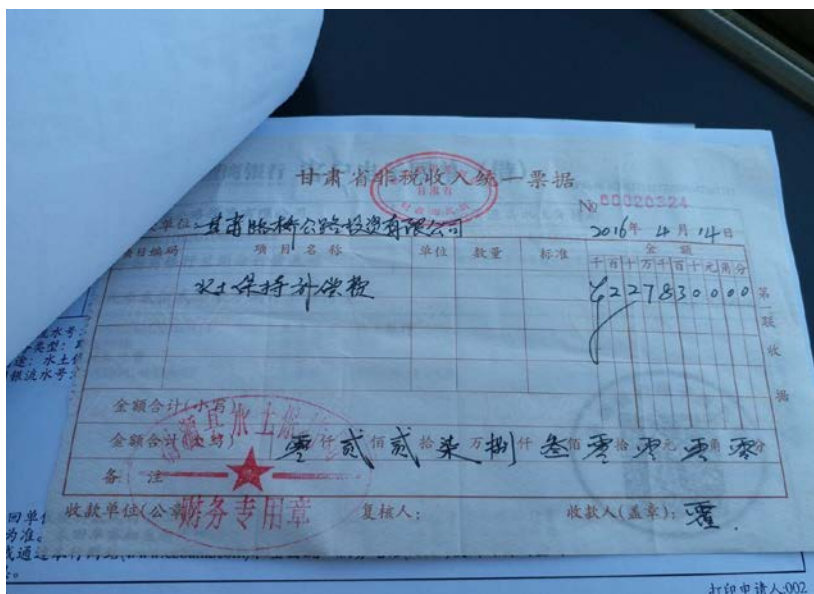 甘肃省非税收入统一票据
No 00020324
单位: 甘肃路桥公路投资有限公司 2016年 4月 14日
项目编码 项目名称 单位 数量 标准 金额
千百十万千百十元角分
水土保持补偿款 ¥227830000
第
联
收
据
金额合计(小写)
金额合计(大写) 零仟贰佰贰拾柒万捌仟叁佰零拾零元零角零分
备注
县水土保
财务专用章
收款单位(公章) 复核人: 收款人(盖章): 霍
流水号:
类型:
途: 水土
银流水号:
回单
为准。
打印申请人:002